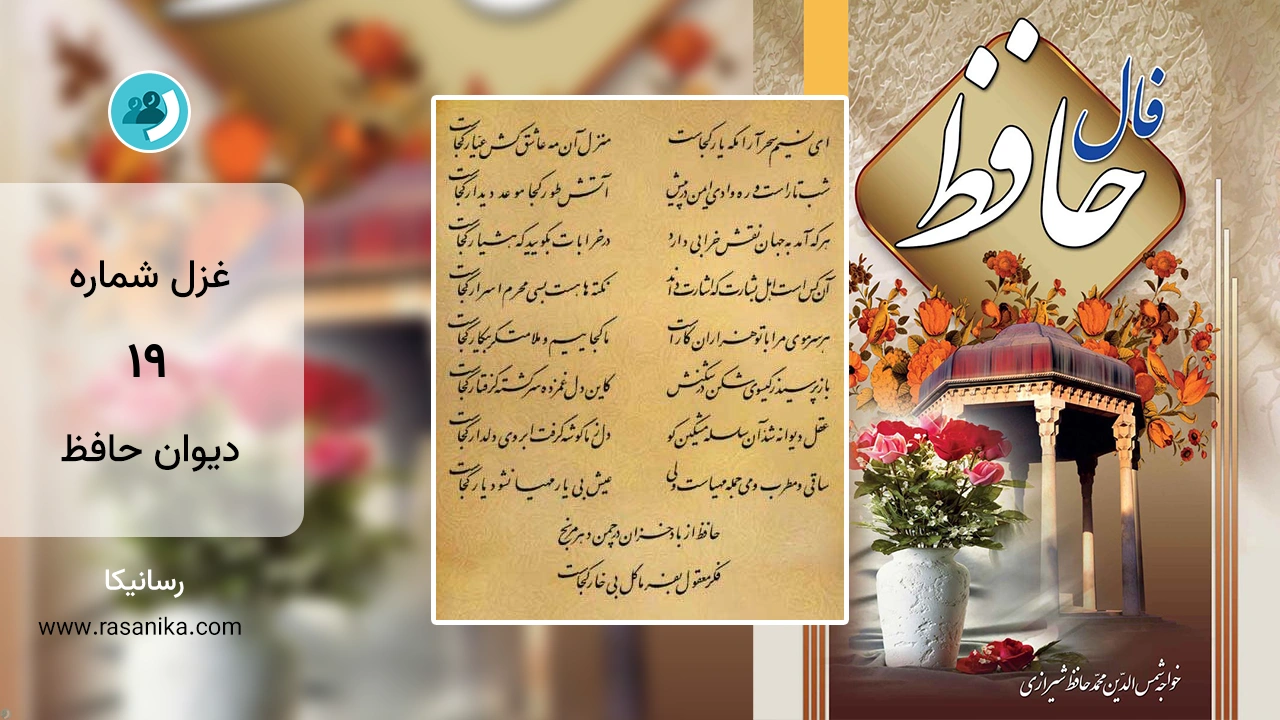 فال
حافظ
ای نسیم سحر آرامگه یار کجاست    منزل آن مه عاشق‌کش عیار کجاست
شب تار است و ره وادی ایمن در پیش    آتش طور کجا موعد دیدار کجاست
هر که آمد به جهان نقش خرابی دارد    در خرابات بگویید که هشیار کجاست
آن کس است اهل بشارت که اشارت داند    نکته‌ها هست بسی محرم اسرار کجاست
هر سر موی مرا با تو هزاران کار است    ما کجاییم و ملامت گر بیکار کجاست
باز پرسید ز گیسوی شکن در شکنش    کاین دل غمزده سرگشته گرفتار کجاست
عقل دیوانه شد آن سلسله مشکین کو    دل ز ما گوشه گرفت ابروی دلدار کجاست
ساقی و مطرب و می جمله مهیاست ولی    عیش بی یار مهیا نشود یار کجاست
حافظ از باد خزان در چمن دهر مرنج
فکر معقول بفرما گل بی خار کجاست
غزل شماره
۱۹
دیوان حافظ
رسانیکا
www.rasanika.com
خواجه شمس الدین محمد حافظ شیرازی